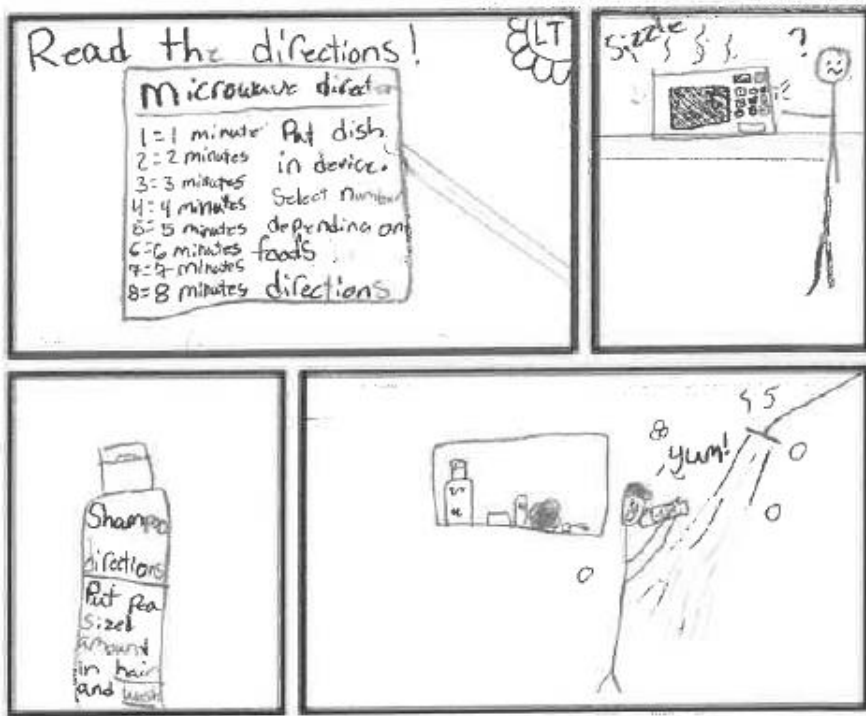 Read the directions!
LT
Microwave direct
1=1 minute
2=2 minutes
3=3 minutes
4=4 minutes
5=5 minutes
6=6 minutes
7=7 minutes
8=8 minutes
Put dish
in device.
Select number
depending on
foods
directions
Sizzle
?
Shampoo
directions
Put pea
sized
amount
in hair
and wash
Yum!